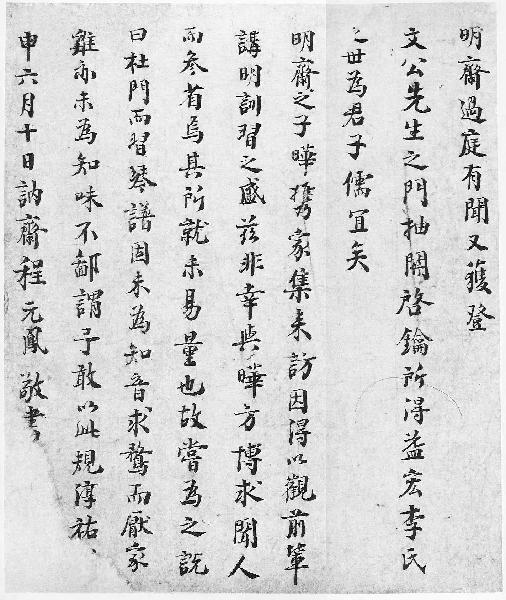 明齋過庭有聞又獲登
文公先生之門抽關啓鑰所得益宏李氏
之世為君子儒宜矣
明齋之子曄携家集来訪因得以觀前軰
講明訓習之盛兹非幸與曄方博求聞人
而叅省焉其所就未易量也故嘗為之説
曰杜門而習琴譜固未為知音求鶩而厭家
雞亦未為知味不鄙謂予敢以此規淳祐
申六月十日訥齋程元鳳敬書